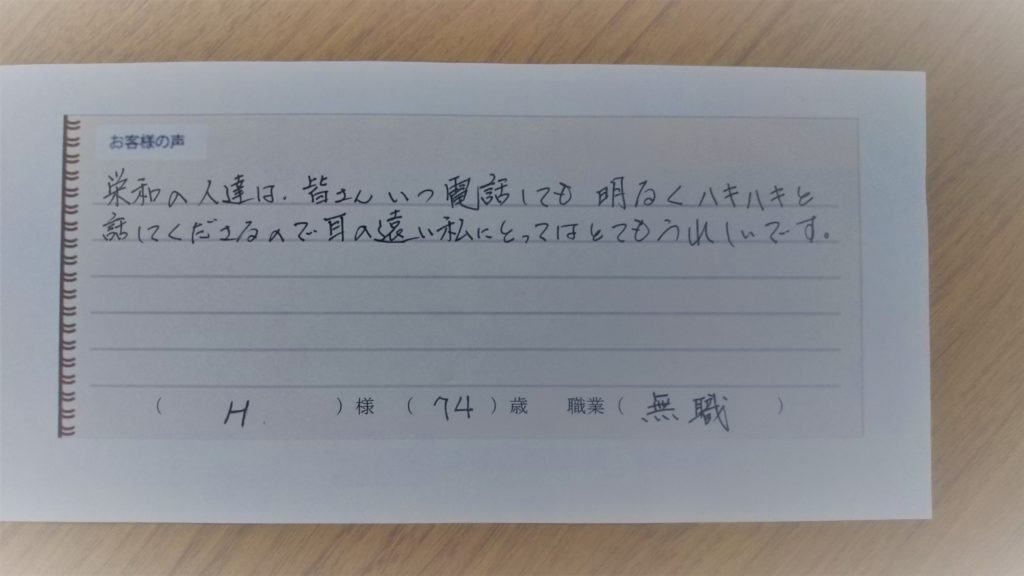 お客様の声
栄和の人達は、皆さんいつ電話しても明るくハキハキと
話してくださるので耳の遠い私にとってはとてもうれしいです。
( H )様 ( 74 )歳 職業( 無職 )